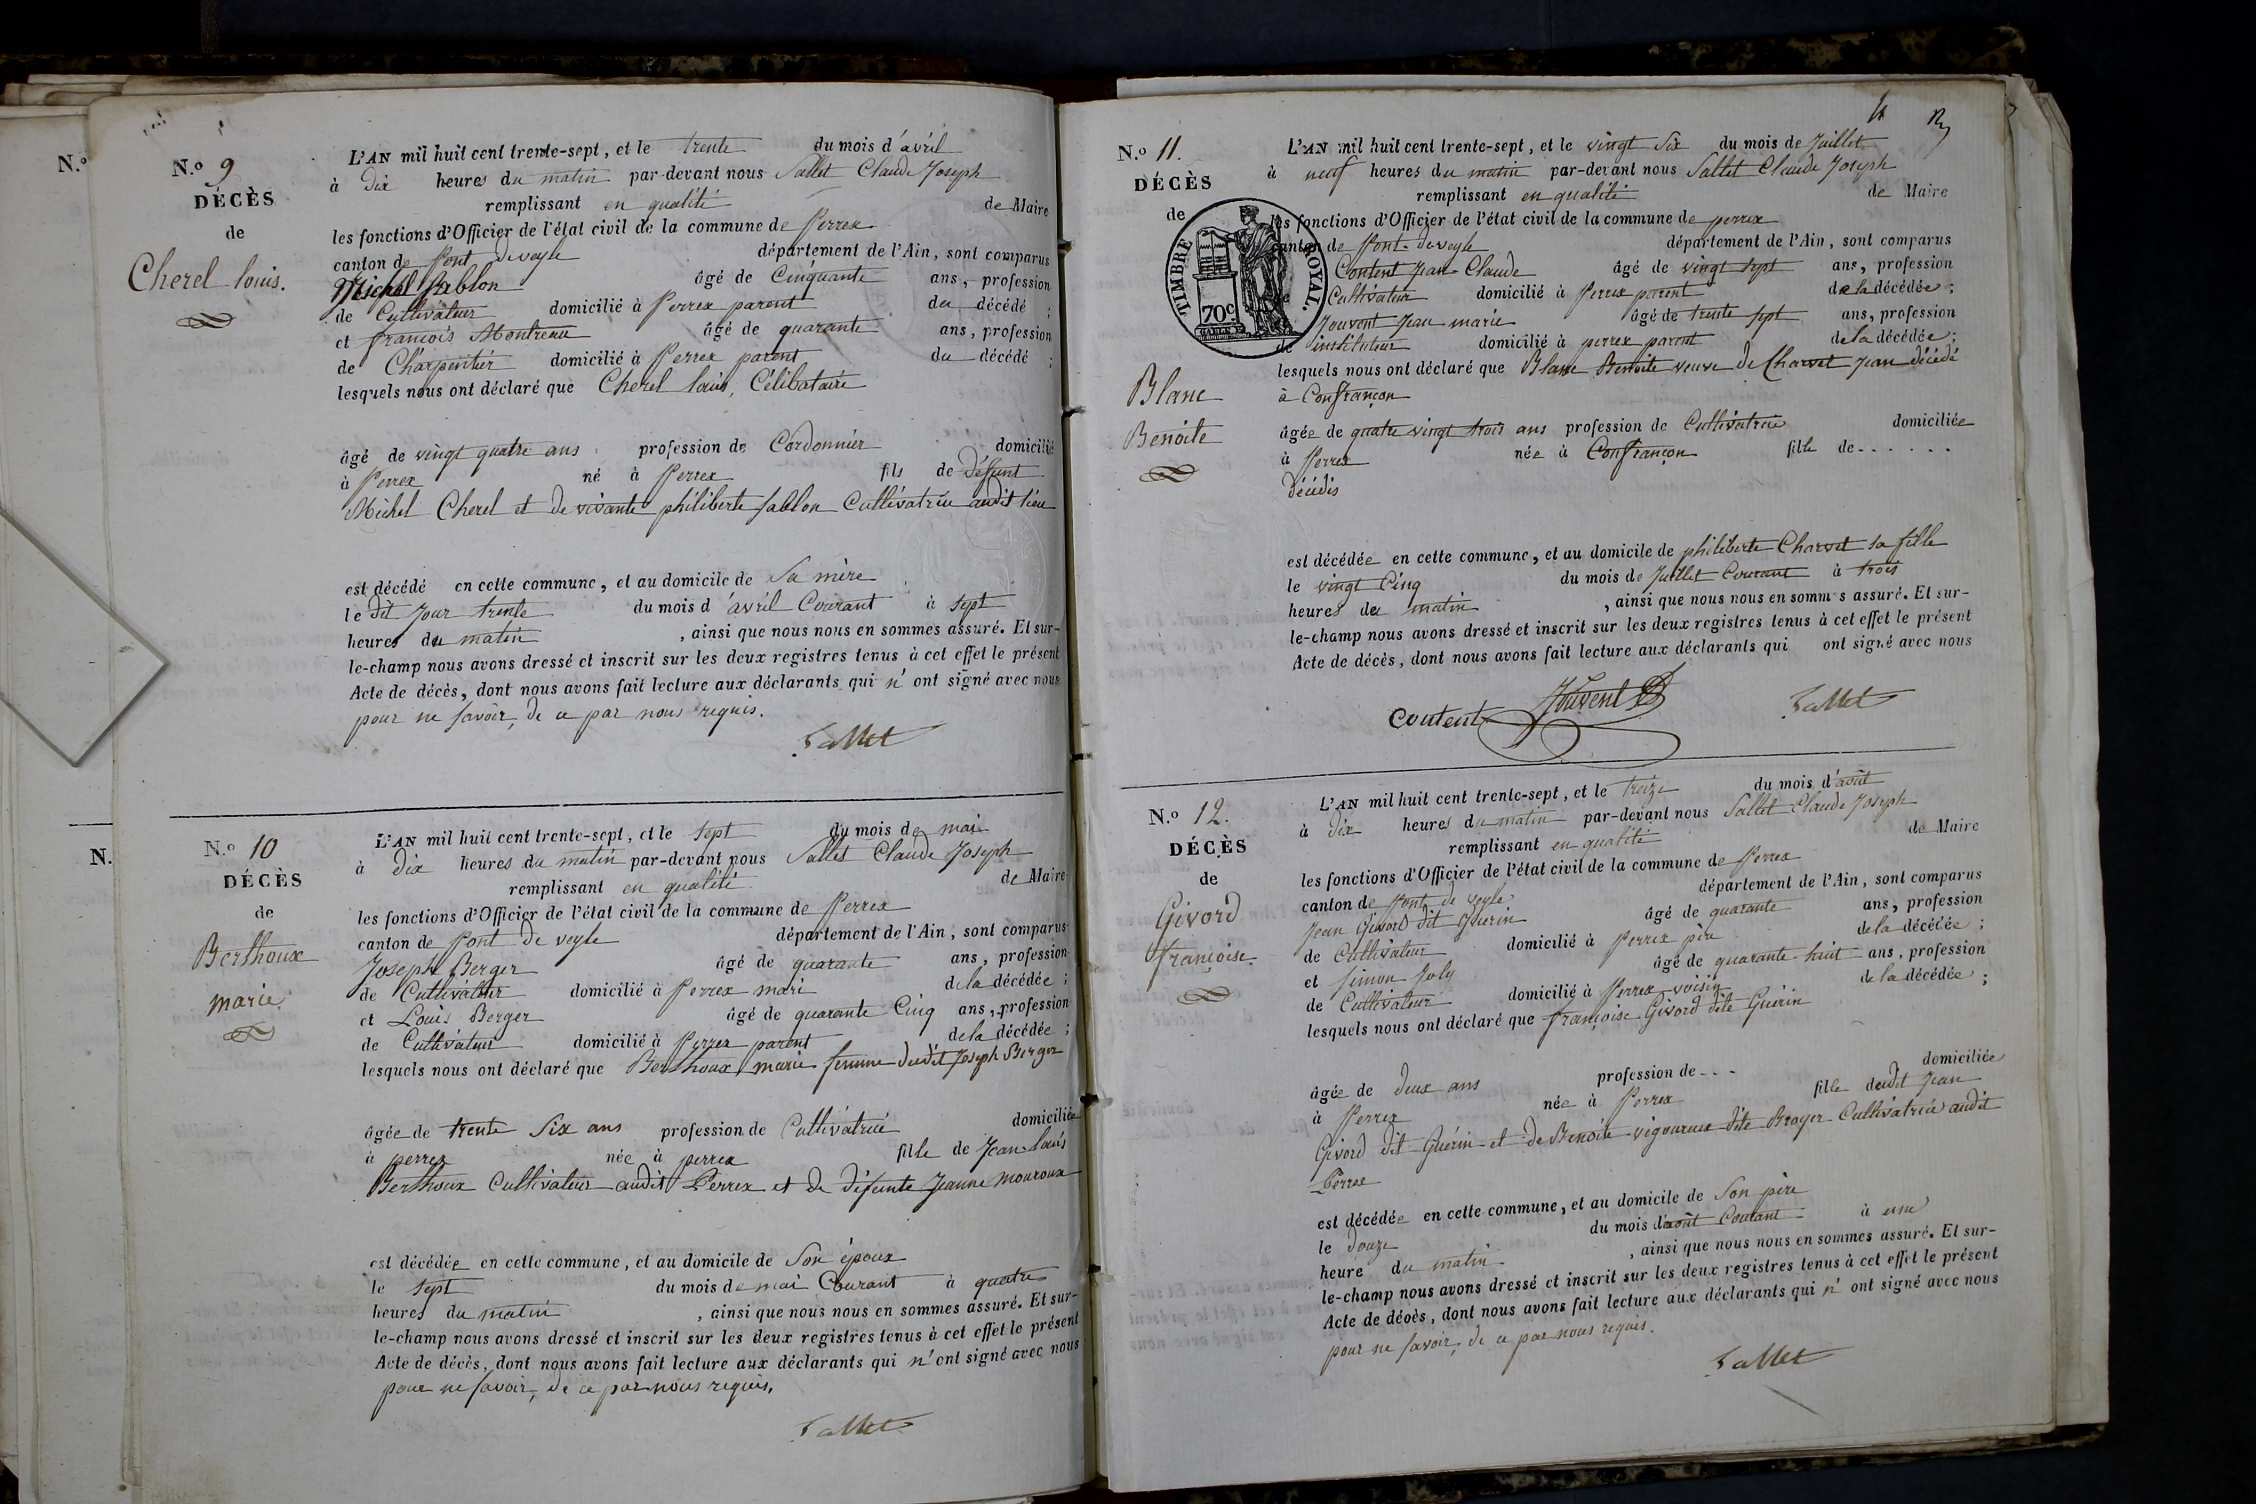 N.o 9
DÉCÈS
de
Cherel louis.
L'AN mil huit cent trente-sept, et le trente du mois d'avril
à Dix heures du matin par-devant nous Sallet Claude Joseph
remplissant en qualité de Maire
les fonctions d'Officier de l'état civil de la commune de Perrex
canton de Pont deveyle département de l'Ain, sont comparus
Michel Sablon âgé de Cinquante ans, profession
de Cultivateur domicilié à Perrex parent du décédé ;
et françois Montreau âgé de quarante ans, profession
de Charpentier domicilié à Perrex parent du décédé ;
lesquels nous ont déclaré que Cherel louis, Célibataire
âgé de vingt quatre ans profession de Cordonnier domicilié
à Perrex né à Perrex fils de Déffunt
Michel Cherel et de vivante philiberte Sablon Cultivatrice audit lieu
est décédé en cette commune, et au domicile de Sa mère
le dit jour trente du mois d'avril Courant à sept
heures du matin , ainsi que nous nous en sommes assuré. Et sur-
le-champ nous avons dressé et inscrit sur les deux registres tenus à cet effet le présent
Acte de décès, dont nous avons fait lecture aux déclarants qui n'ont signé avec nous
pour ne savoir, de ce par nous requis.
Sallet
N.o 10
DÉCÈS
de
Berthoux
marie
L'AN mil huit cent trente-sept, et le sept du mois de mai
à Dix heures du matin par-devant nous Sallet Claude Joseph
remplissant en qualité de Maire
les fonctions d'Officier de l'état civil de la commune de Perrex
canton de Pont de veyle département de l'Ain, sont comparus
Joseph Berger âgé de quarante ans, profession
de Cultivateur domicilié à Perrex mari de la décédée ;
et Louis Berger âgé de quarante Cinq ans, profession
de Cultivateur domicilié à Perrex parent de la décédée ;
lesquels nous ont déclaré que Berthoux marie femme dudit Joseph Berger
âgée de trente Six ans profession de Cultivatrice domiciliée
à perrex née à perrex fille de Jean louis
Berthoux Cultivateur audit Perrex et de défunte Jeanne Mouroux
est décédée en cette commune, et au domicile de Son époux
le sept du mois de mai Courant à quatre
heures du matin , ainsi que nous nous en sommes assuré. Et sur-
le-champ nous avons dressé et inscrit sur les deux registres tenus à cet effet le présent
Acte de décès, dont nous avons fait lecture aux déclarants qui n'ont signé avec nous
pour ne savoir, de ce par nous requis.
Sallet
N.o 11.
DÉCÈS
de
TIMBRE ROYAL.
70c.
Blanc
Benoite
L'AN mil huit cent trente-sept, et le vingt Six du mois de Juillet
à neuf heures du matin par-devant nous Sallet Claude Joseph
remplissant en qualité de Maire
les fonctions d'Officier de l'état civil de la commune de perrex
canton de Pont-deveyle département de l'Ain, sont comparus
Content Jean-Claude âgé de vingt sept ans, profession
de Cultivateur domicilié à Perrex parent de la décédée ;
Jouvent Jean marie âgé de trente sept ans, profession
de instituteur domicilié à perrex parent de la décédée ;
lesquels nous ont déclaré que Blanc Benoite veuve de Charvet Jean décédé
à Confrançon
âgée de quatre vingt trois ans profession de Cultivatrice domiciliée
à Perrex née à Confrançon fille de . . . . . .
décédés
est décédée en cette commune, et au domicile de philiberte Charvet sa fille
le vingt Cinq du mois de Juillet Courant à trois
heures du matin , ainsi que nous nous en sommes assuré. Et sur-
le-champ nous avons dressé et inscrit sur les deux registres tenus à cet effet le présent
Acte de décès, dont nous avons fait lecture aux déclarants qui ont signé avec nous
Content Jouvent Sallet
N.o 12.
DÉCÈS
de
Givord
françoise.
L'AN mil huit cent trente-sept, et le treize du mois d'août
à Dix heures du matin par-devant nous Sallet Claude Joseph
remplissant en qualité de Maire
les fonctions d'Officier de l'état civil de la commune de Perrex
canton de Pont de veyle département de l'Ain, sont comparus
Jean Givord dit Guérin âgé de quarante ans, profession
de Cultivateur domicilié à Perrex père de la décédée ;
et Simon Joly âgé de quarante huit ans, profession
de Cultivateur domicilié à Perrex voisin de la décédée ;
lesquels nous ont déclaré que françoise Givord dite Guérin
âgée de deux ans profession de - - - domiciliée
à Perrex née à Perrex fille dudit Jean
Givord dit Guérin et de Benoite vigoureux dite Broyer Cultivatrice audit
Perrex
est décédée en cette commune, et au domicile de Son père
le douze du mois d'août Courant à une
heure du matin , ainsi que nous nous en sommes assuré. Et sur-
le-champ nous avons dressé et inscrit sur les deux registres tenus à cet effet le présent
Acte de décès, dont nous avons fait lecture aux déclarants qui n'ont signé avec nous
pour ne savoir, de ce par nous requis.
Sallet